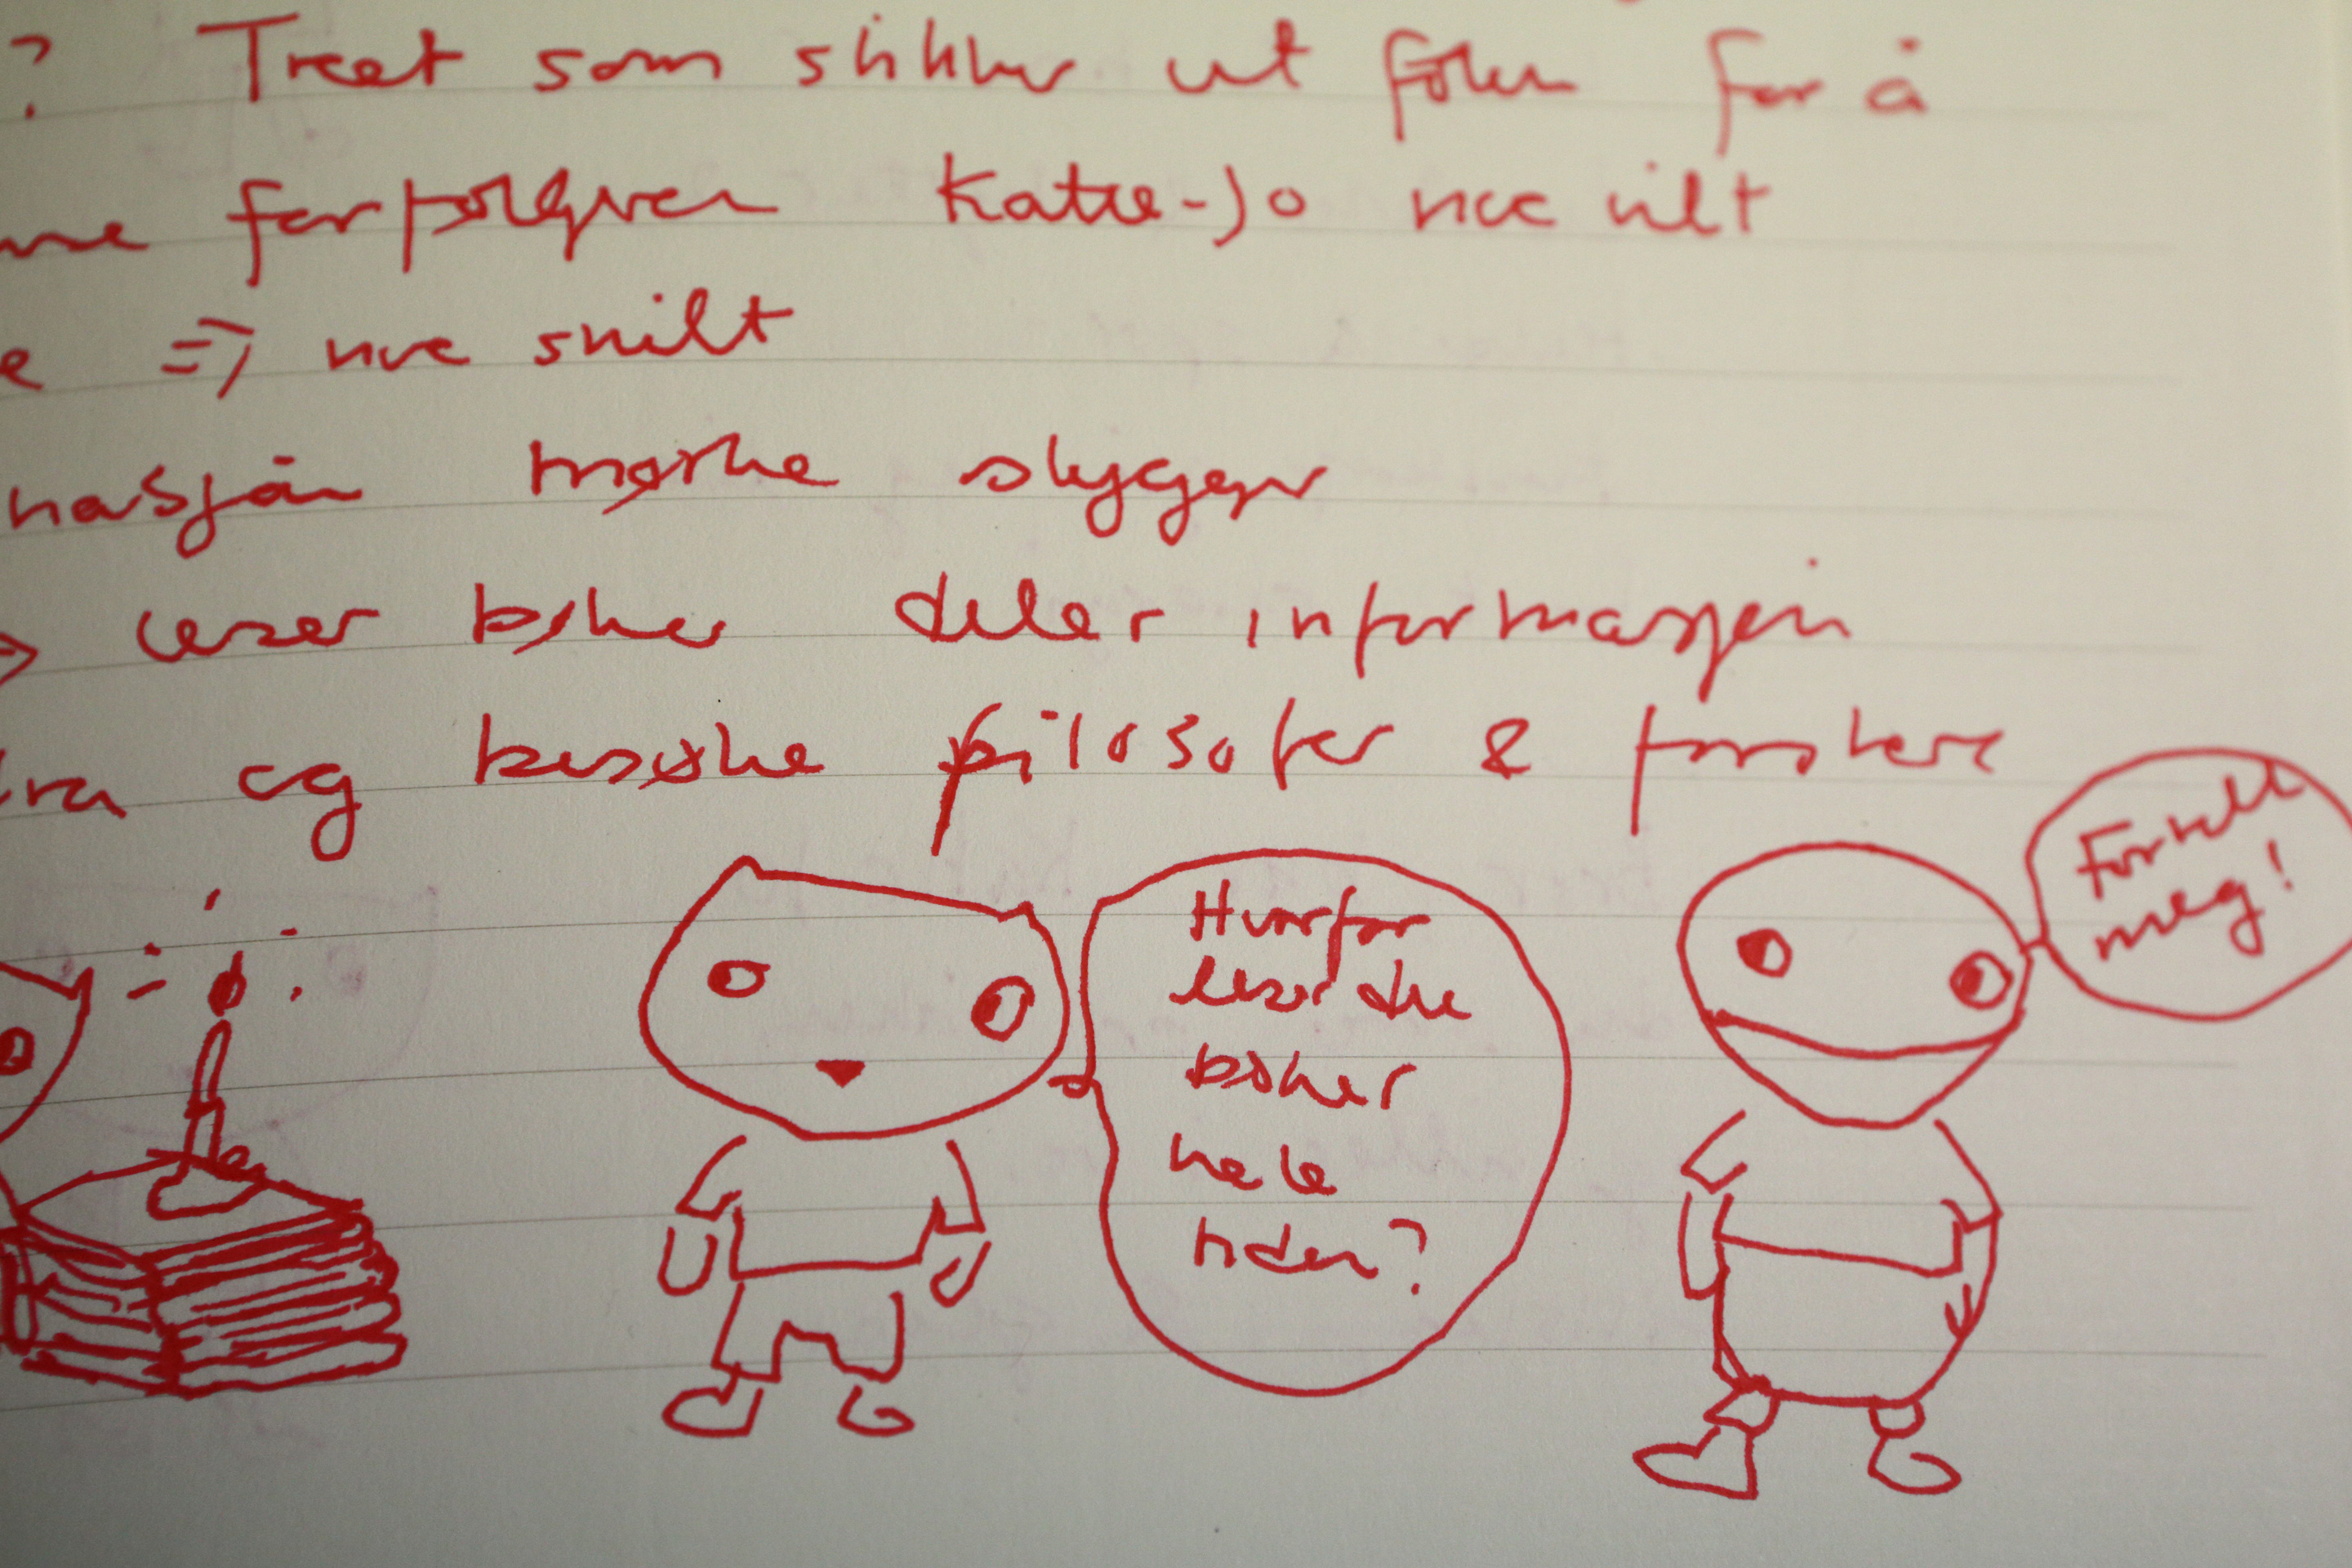 ? Treet som stikker ut foten for å
forfølgeren Katie-Jo noe vilt
e => noe snilt
nasjon mørke skygger
=> leser bøker deler informasjon
og besøke filosofer & forskere
Hvorfor
leser du
bøker
hele
tiden?
Fortell
meg!